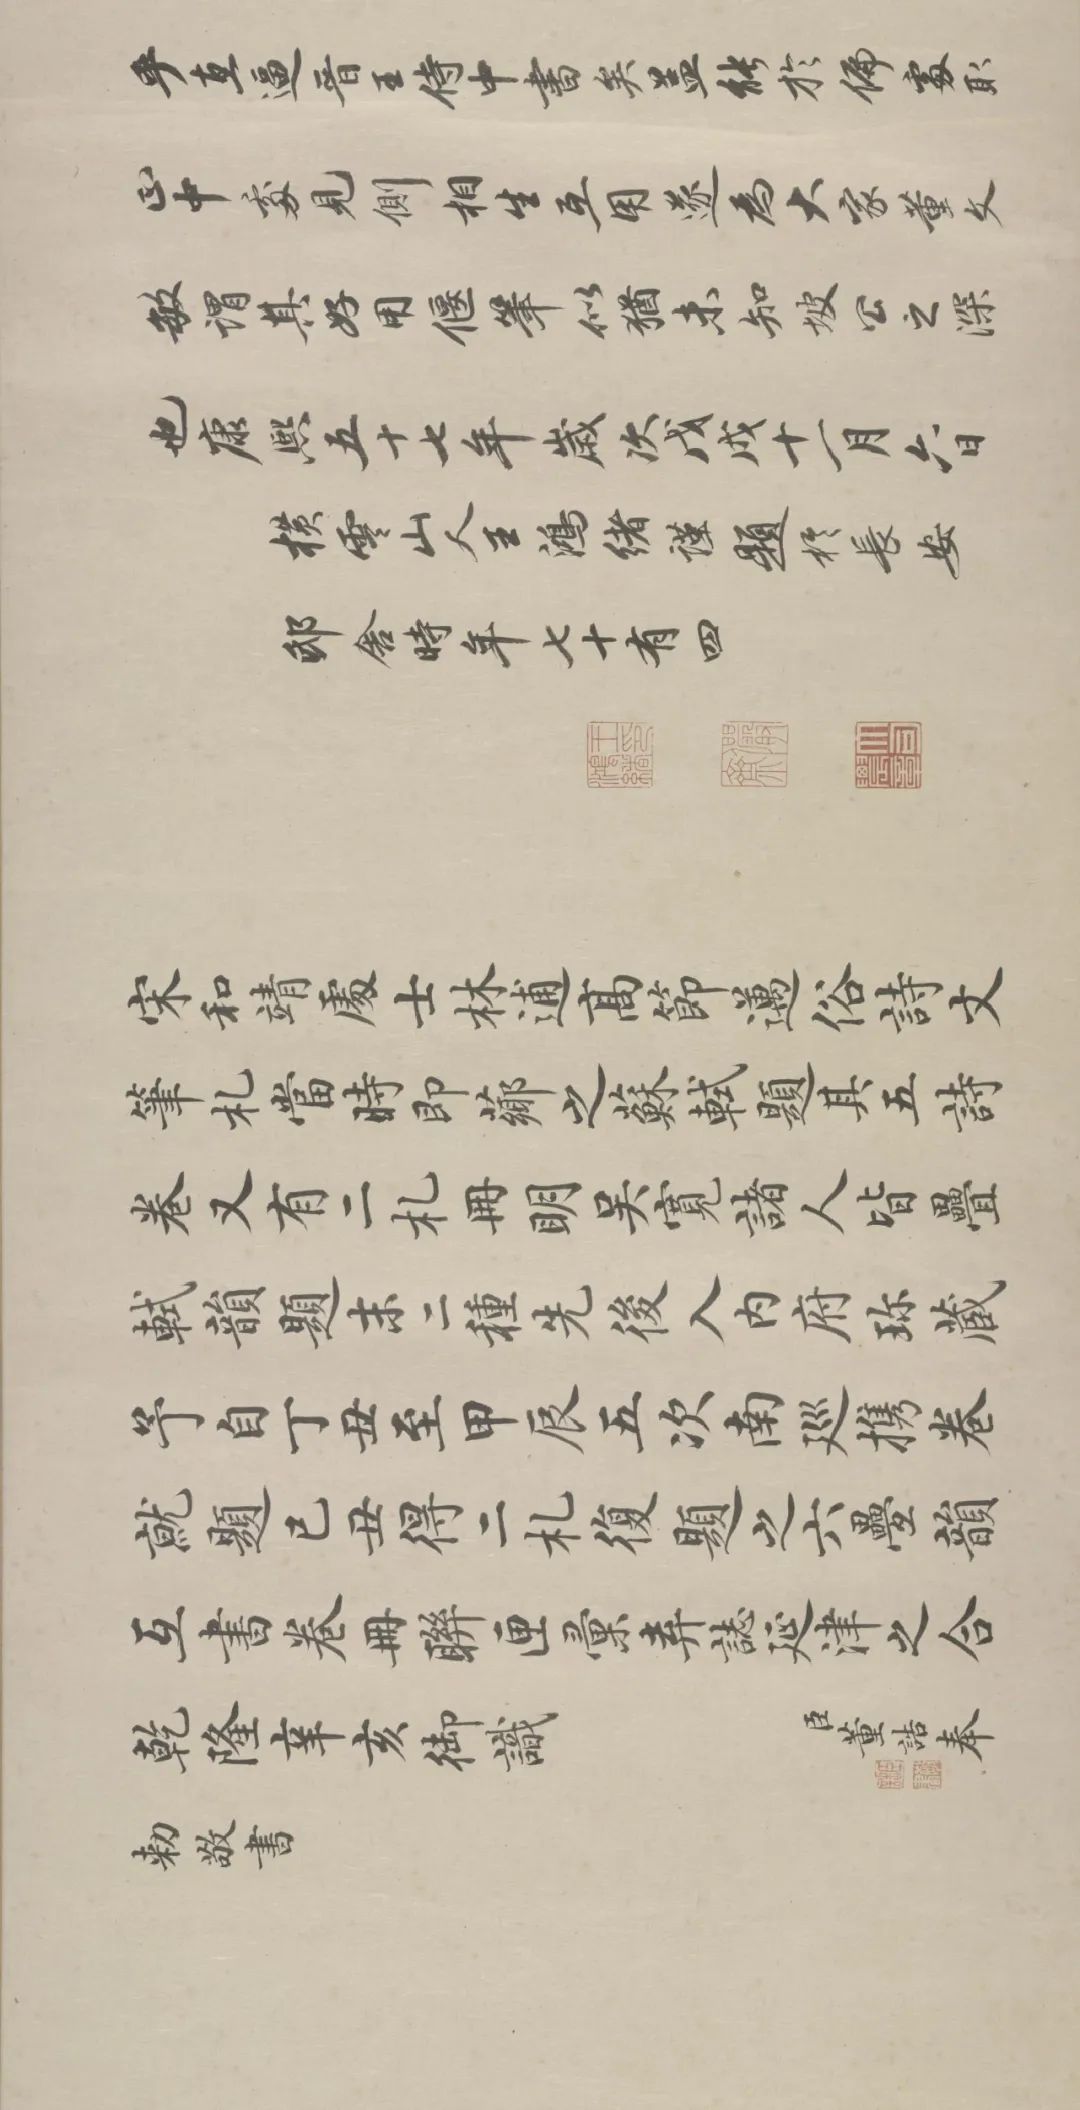 乎直逼晉王侍中書矣蓋能於偏處取
正中處見側相生互用遂為大家董文
敏謂其好用偃筆似猶未知坡公之深
也康熙五十七年歲次戊戌十一月六日
橫雲山人王鴻緒謹題於長安
邸舍時年七十有四
宋和靖處士林逋高節邁俗詩文
筆札當時即薌之蘇軾題其五詩
卷又有二札冊明吳寬諸人皆疊
軾韻題末二種先後入內府珎藏
予自丁丑至甲辰五次南廵携卷
就題己丑得二札復題之六疊韻
互書卷冊聯匣彙弆誌延津之合
乾隆辛亥御識
臣董誥奉
勅敬書